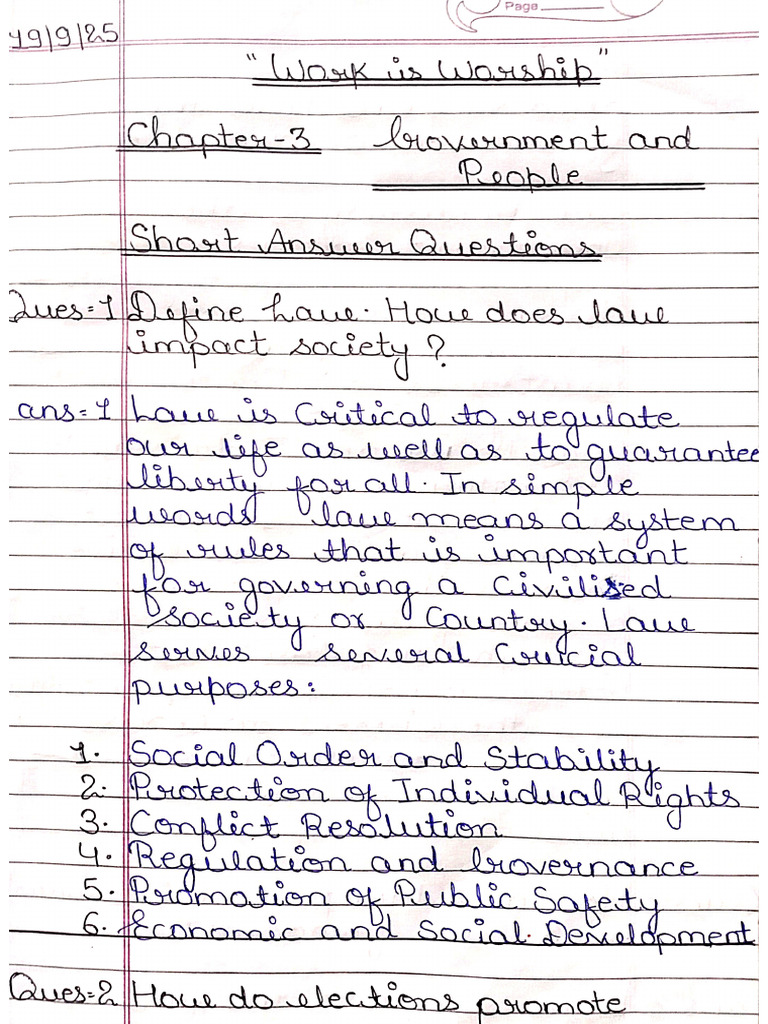 Page
19/9/25
"Work is Worship"
Chapter-3 Government and
People
Short Answer Questions
Ques=1 Define Law. How does law
impact society?
ans=1 Law is Critical to regulate
our life as well as to guarantee
liberty for all. In simple
words law means a system
of rules that is important
for governing a Civilised
society or Country. Law
serves several Crucial
purposes:
1. Social Order and Stability
2. Protection of Individual Rights
3. Conflict Resolution
4. Regulation and Governance
5. Promotion of Public Safety
6. Economic and Social Development
Ques=2 How do elections promote